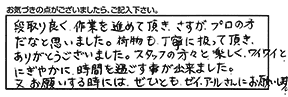 お気づきの点がございましたら、ご記入下さい。
段取り良く、作業を進めて頂き、さすが、プロの方
だなと思いました。荷物も丁寧に扱って頂き、
ありがとうございました。スタッフの方々と楽しく、ワイワイと
にぎやかに、時間を過ごす事が出来ました。
又お願いする時には、ぜひとも、ゼィ.アルさんにお願い